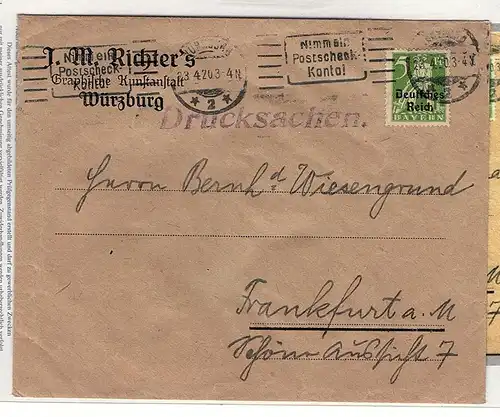 J. M. Richter's
Graphische Kunstanstalt
Würzburg
Nimm ein
Postscheck-
Konto!
23.4.20.3-4N
* 2 *
Nimm ein
Postscheck-
Konto!
23.4.20.3-4N
5
Deutsches
Reich
BAYERN
Drucksachen.
Herrn Bernh.d Wiesengrund
Frankfurt a. M
Schöne Aussicht 7
M
7